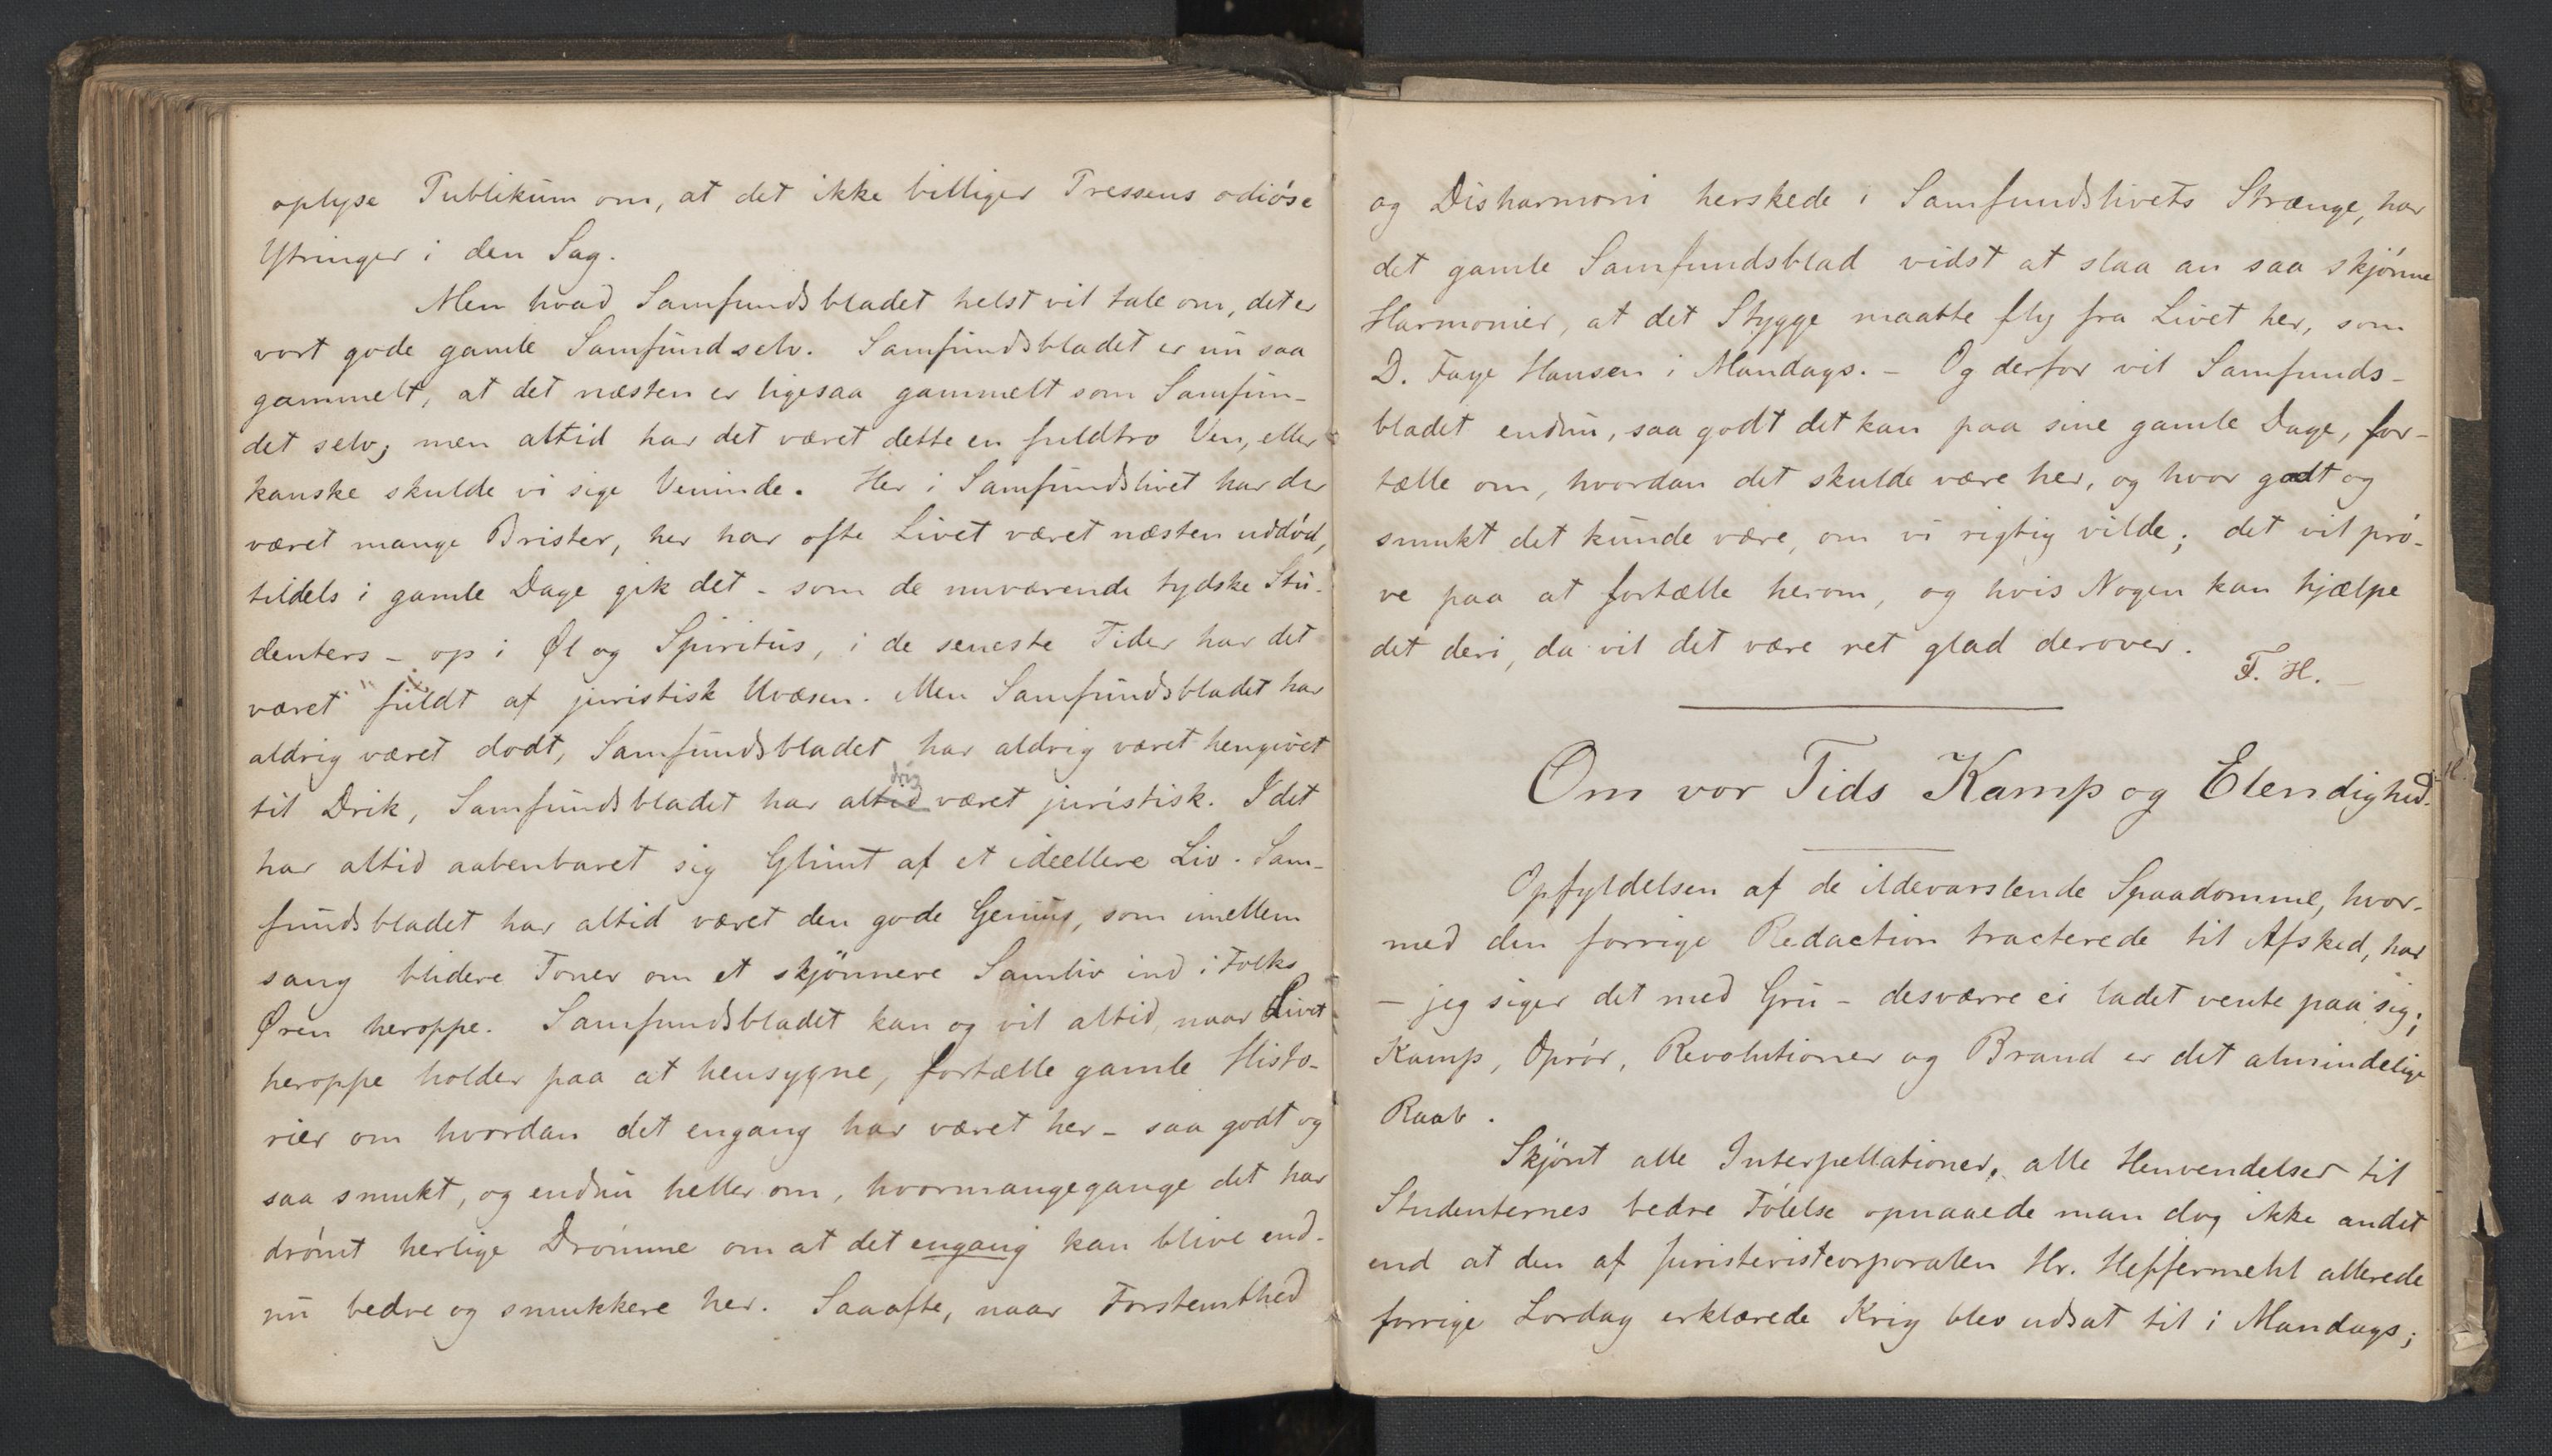 oplyse Publikum om, at det ikke billiger Pressens odiøse
Ytringer i den Sag.
Men hvad Samfundsbladet helst vil tale om, det er
vort gode gamle Samfund selv. Samfundsbladet er nu saa
gammelt, at det næsten er ligesaa gammelt som Samfun-
det selv; men altid har det været dette en fuldtro Ven, eller
kanske skulde vi sige Veninde. Her i Samfundslivet har der
været mange Brister, her har ofte Livet været næsten uddød,
tildels i gamle Dage gik det - som de nuværende tydske Stu-
denters - op i Øl og Spiritus, i de seneste Tider har det
været fuldt af juristisk Uvæsen. Men Samfundsbladet har
aldrig været dødt, Samfundsbladet har aldrig været hengivet
til Drik, Samfundsbladet har aldrig været juristisk. I det
har altid aabenbaret sig Glimt af et ideellere Liv. Sam-
fundsbladet har altid været den gode Genius, som imellem
sang blidere Toner om et skjønnere Samliv ind i Folks
Øren heroppe. Samfundsbladet kan og vil altid, naar Livet
heroppe holder paa at hensygne, fortælle gamle Histo-
rier om hvordan det engang har været her - saa godt og
saa smukt, og endnu heller om, hvormangegange det har
drømt herlige Drømme om at det engang kan blive end-
nu bedre og smukkere her. Saaofte, naar Forstemthed
og Disharmoni herskede i Samfundslivets Strænge, har
det gamle Samfundsblad vidst at slaa an saa skjønne
Harmonier, at det Stygge maatte fly fra Livet her, som
D. Faye Hansen i Mandags. - Og derfor vil Samfunds-
bladet endnu, saa godt det kan paa sine gamle Dage, for-
tælle om, hvordan det skulde være her, og hvor godt og
smukt det kunde være, om vi rigtig vilde; det vil prø-
ve paa at fortælle herom, og hvis Nogen kan hjælpe
det deri, da vil det være ret glad derover.
F. H. -
Om vor Tids Kamp og Elendighed.
Opfyldelsen af de ildevarslende Spaadomme, hvor-
med den forrige Redaction tracterede til Afsked, har
- jeg siger det med Gru - desværre ei ladet vente paa sig;
Kamp, Oprør, Revolutioner og Brand er det almindelige
Raab.
Skjønt alle Interpellationer, alle Henvendelser til
Studenternes bedre Følelse opnaaede man dog ikke andet
end at den af Hr. Heffermehl allerede
forrige Lørdag erklærede Krig blev udsat til i Mandags;